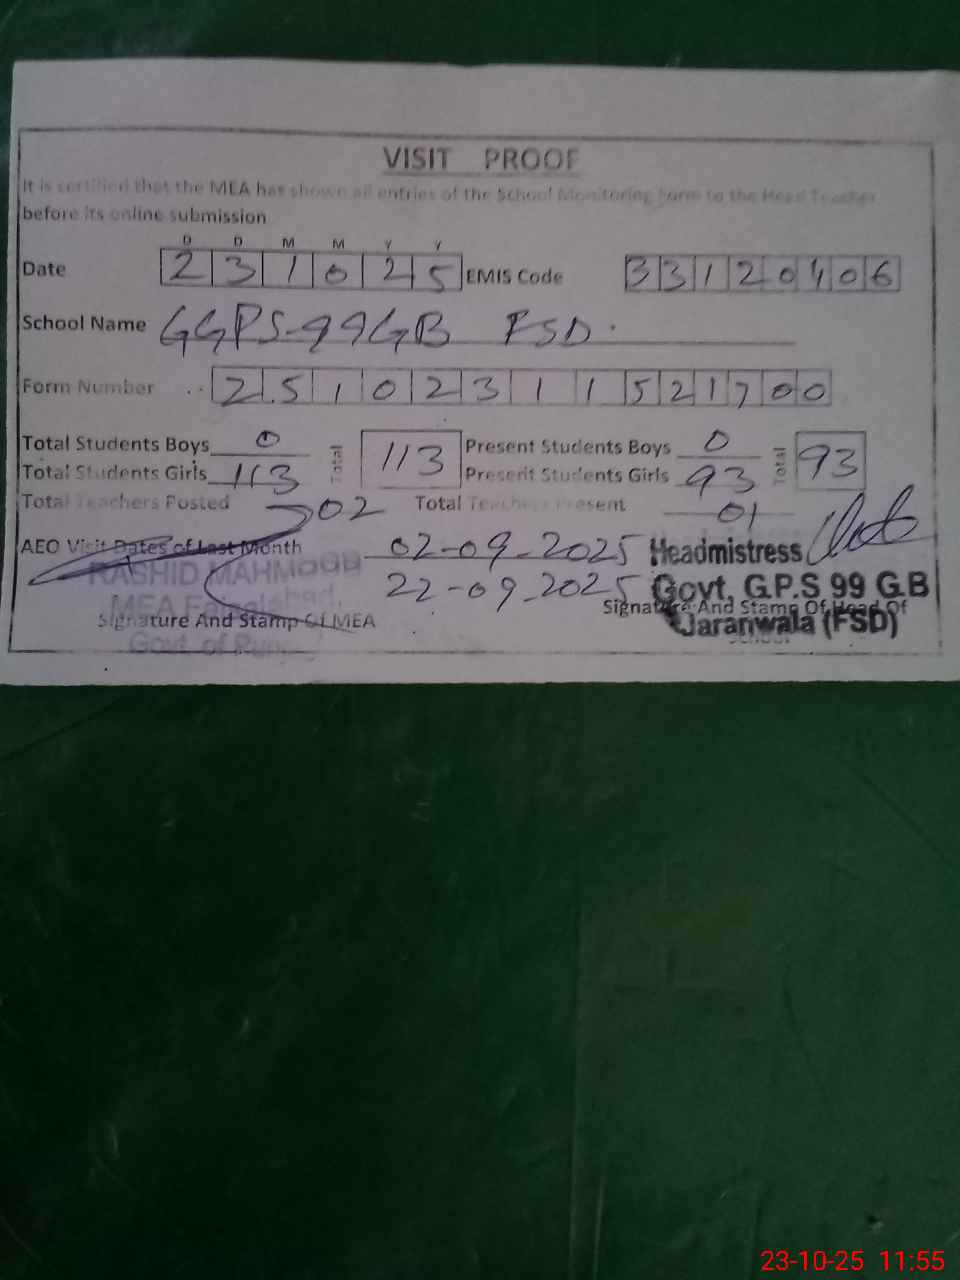 VISIT PROOF
It is certified that the MEA has shown all entries of the School Monitoring Form to the Head Teacher
before its online submission
D D M M Y Y
Date 2 3 1 0 2 5 EMIS Code 3 3 1 2 0 4 0 6
School Name GGPS-99GB FSD.
Form Number 2 5 1 0 2 3 1 1 5 2 1 7 0 0
Total Students Boys 0 Total 113 Present Students Boys 0 Total 93
Total Students Girls 113 Present Students Girls 93
Total Teachers Posted 02 Total Teachers Present 01
AEO Visit Dates of Last Month 02-09-2025 Headmistress
RASHID MAHMOOD 22-09-2025 Govt, G.P.S 99 G.B
MEA Faisalabad. Signature And Stamp Of Head Of
Signature And Stamp Of MEA Jaranwala (FSD)
Govt. of School
23-10-25 11:55